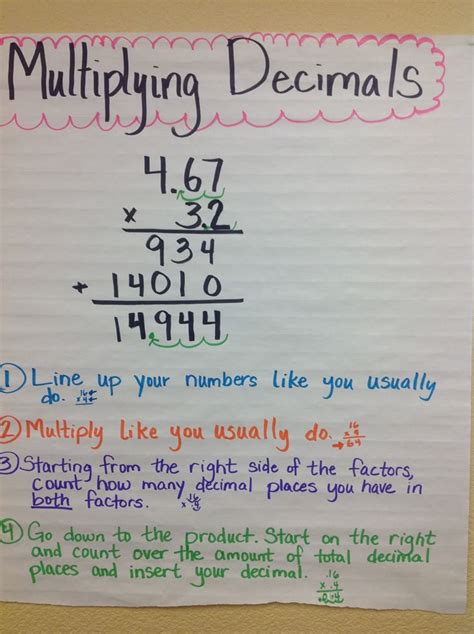 Multiplying Decimals
4.67
x 3.2
934
+ 14010
14.944
1 Line up your numbers like you usually
do.
2 Multiply like you usually do. 16
x 4
64
3 Starting from the right side of the factors,
count how many decimal places you have in
both factors.
4 Go down to the product. Start on the right
and count over the amount of total decimal
places and insert your decimal. .16
x .4